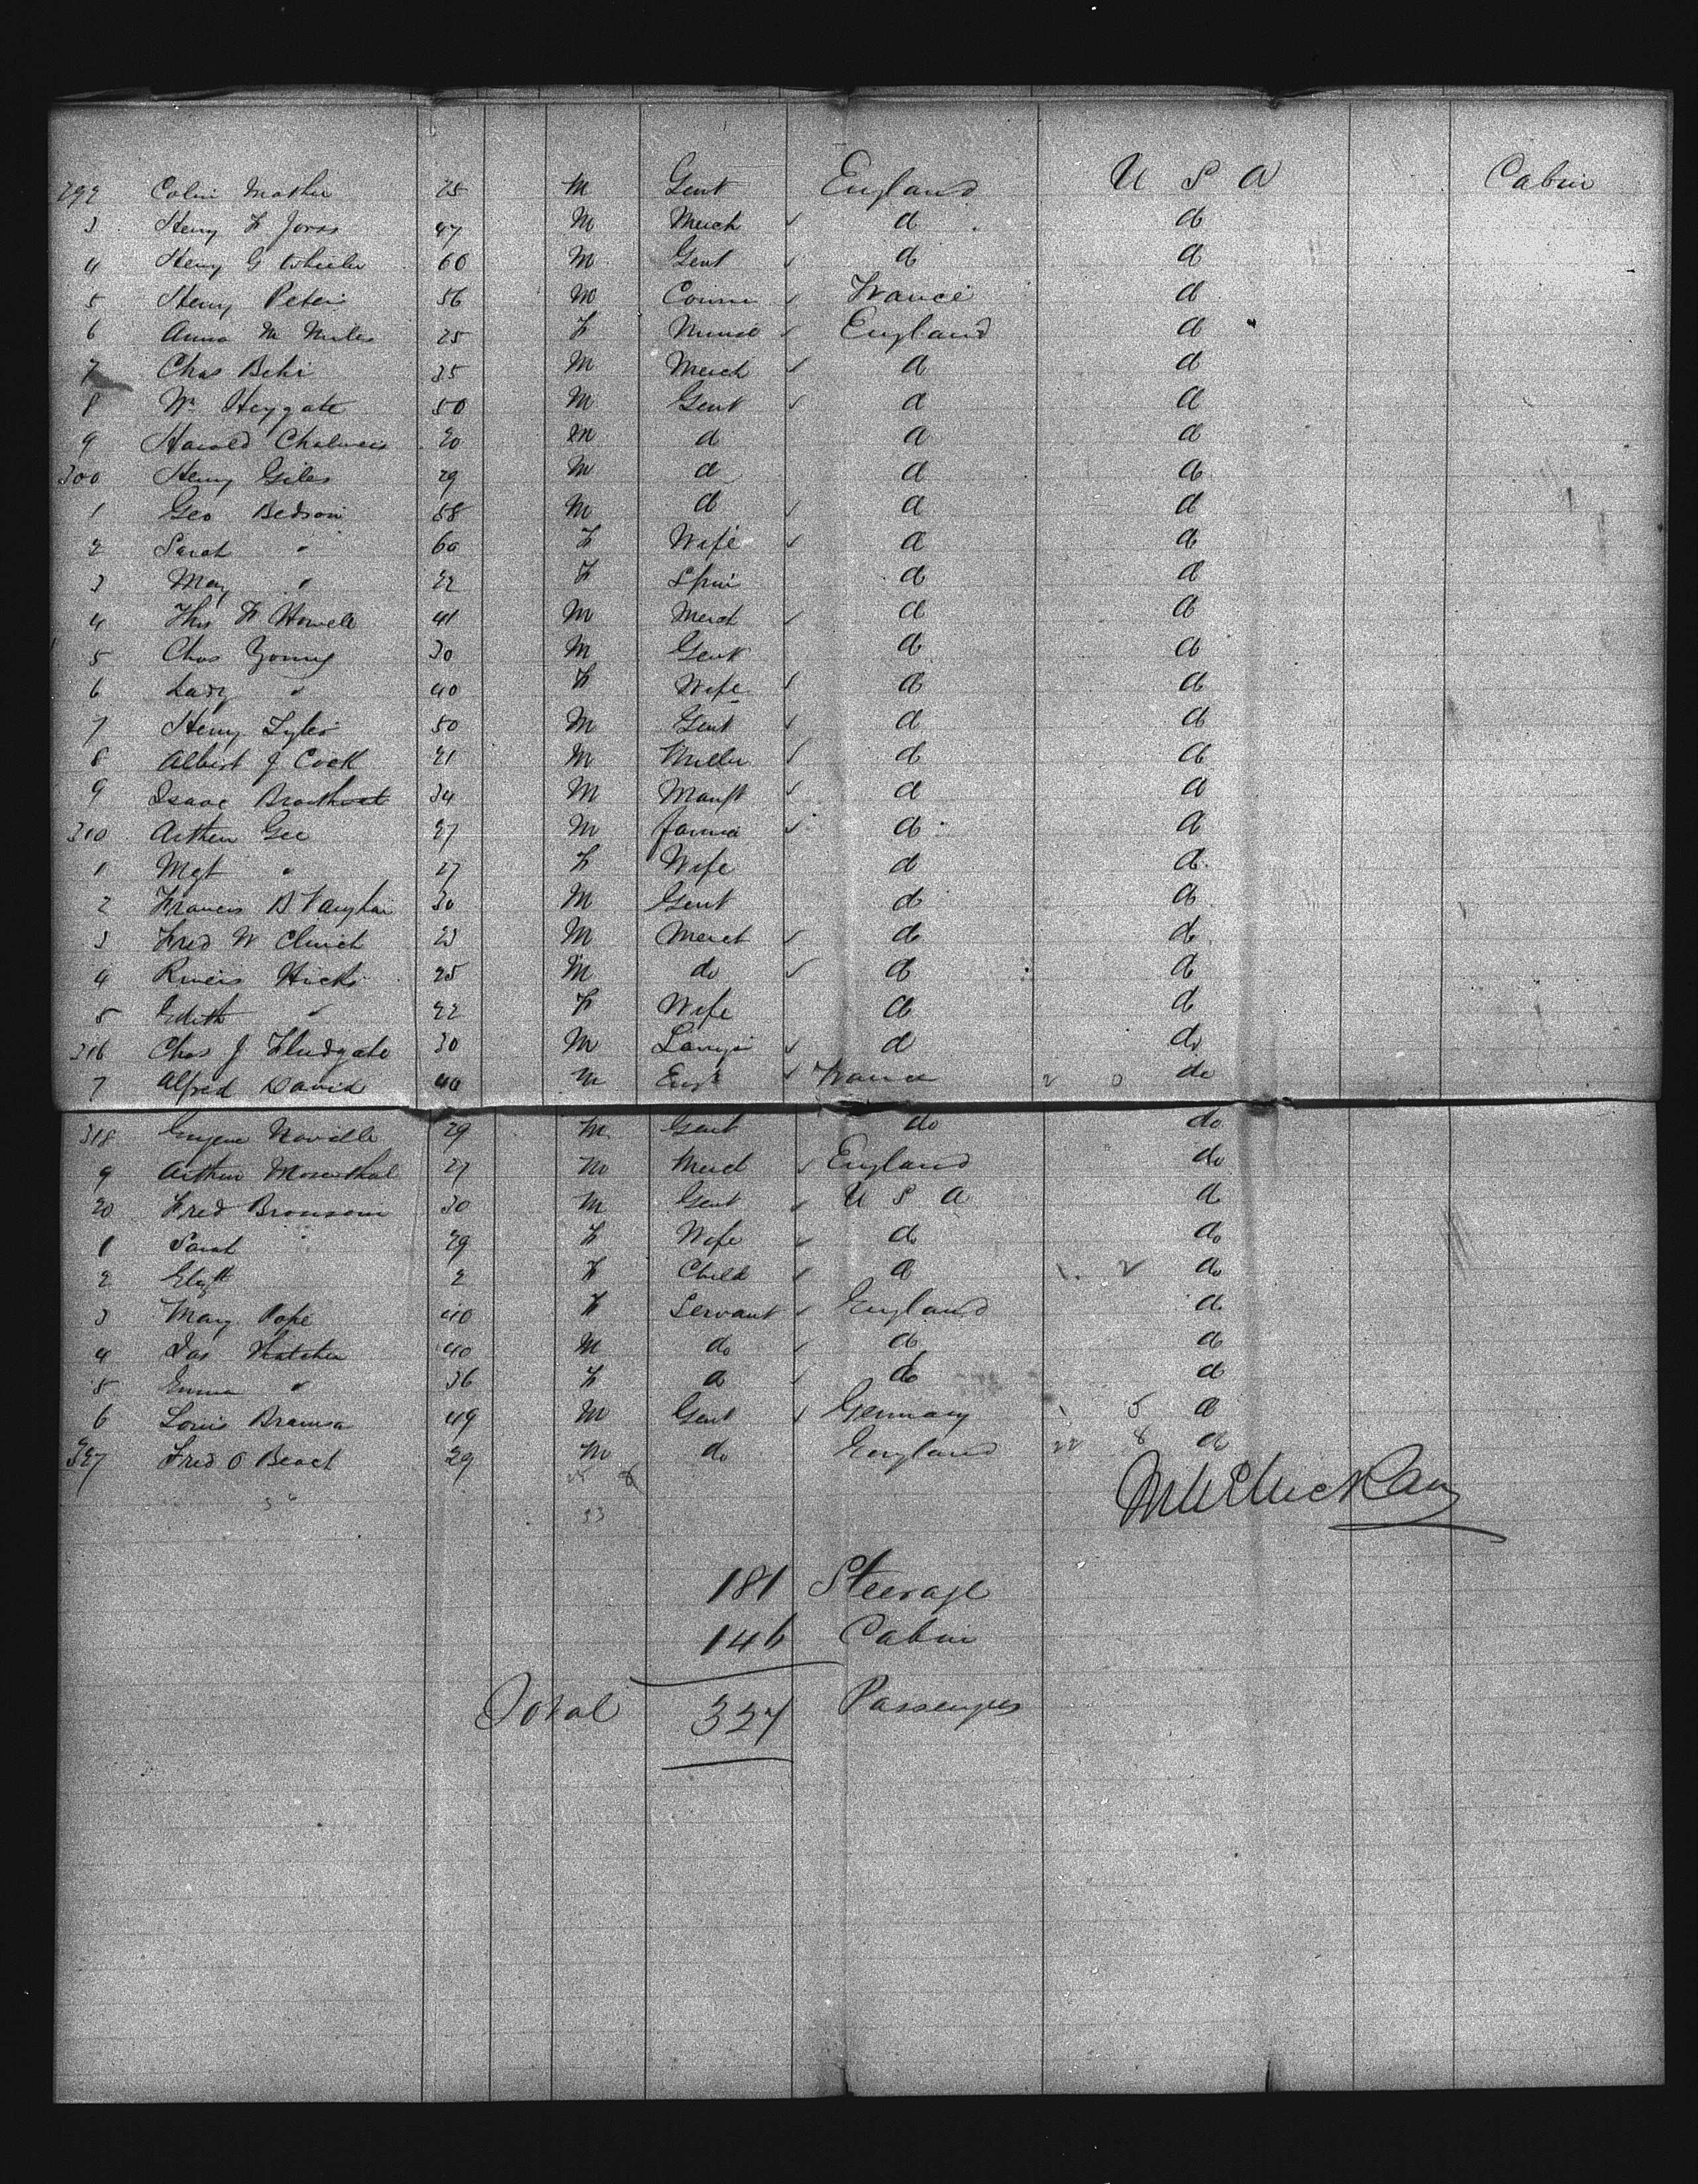 292 Colin Mather 25 M Gent England U S A Cabin
3 Henry F Jorss 47 M Merch d d
4 Henry G Wheeler 60 M Gent d d
5 Henry Peter 56 M France d
6 Anna M Miles 25 F Nurse England d
7 Chas Behr 35 M Merch d d
8 Wm Heygate 50 M Gent d d
9 Harold Chalmers 20 M d d d
300 Henry Giles 29 M d d d
1 Geo Bedson 58 M d d d
2 Sarah " 60 F Wife d d
3 May " 22 F Spin d d
4 Ths F Howell 41 M Merch d d
5 Chas Young 30 M Gent d d
6 Lady " 40 F Wife d d
7 Henry Tyler 50 M Gent d d
8 Albert J Cook 21 M Miller d d
9 Isaac 34 M Manft d d
310 Arthur Gee 27 M Farmer d d
1 Mgt " 27 F Wife d d
2 Francis B Vaughan 30 M Gent d d
3 Fred W Church 23 M Merch d d
4 Hicks 25 M do d d
5 Edith " 22 F Wife d d
316 Chas J Fludgate 30 M Lawyer d do
7 Alfred David 40 M Engr France do
318 Eugene Noville 29 M Gent do do
9 Arthur Mosenthal 27 M Merch England do
20 Fred Bronson 30 M Gent U S A d
1 Sarah " 29 F Wife do do
2 Elizth 2 F Child d do
3 Mary Pope 40 F Servant England d
4 Jas Thatcher 40 M do do do
5 Emma " 36 F d do d
6 Louis 49 M Gent Germany d
327 Fred O Beach 29 M do England do
181 Steerage
146 Cabin
Total 327 Passengers